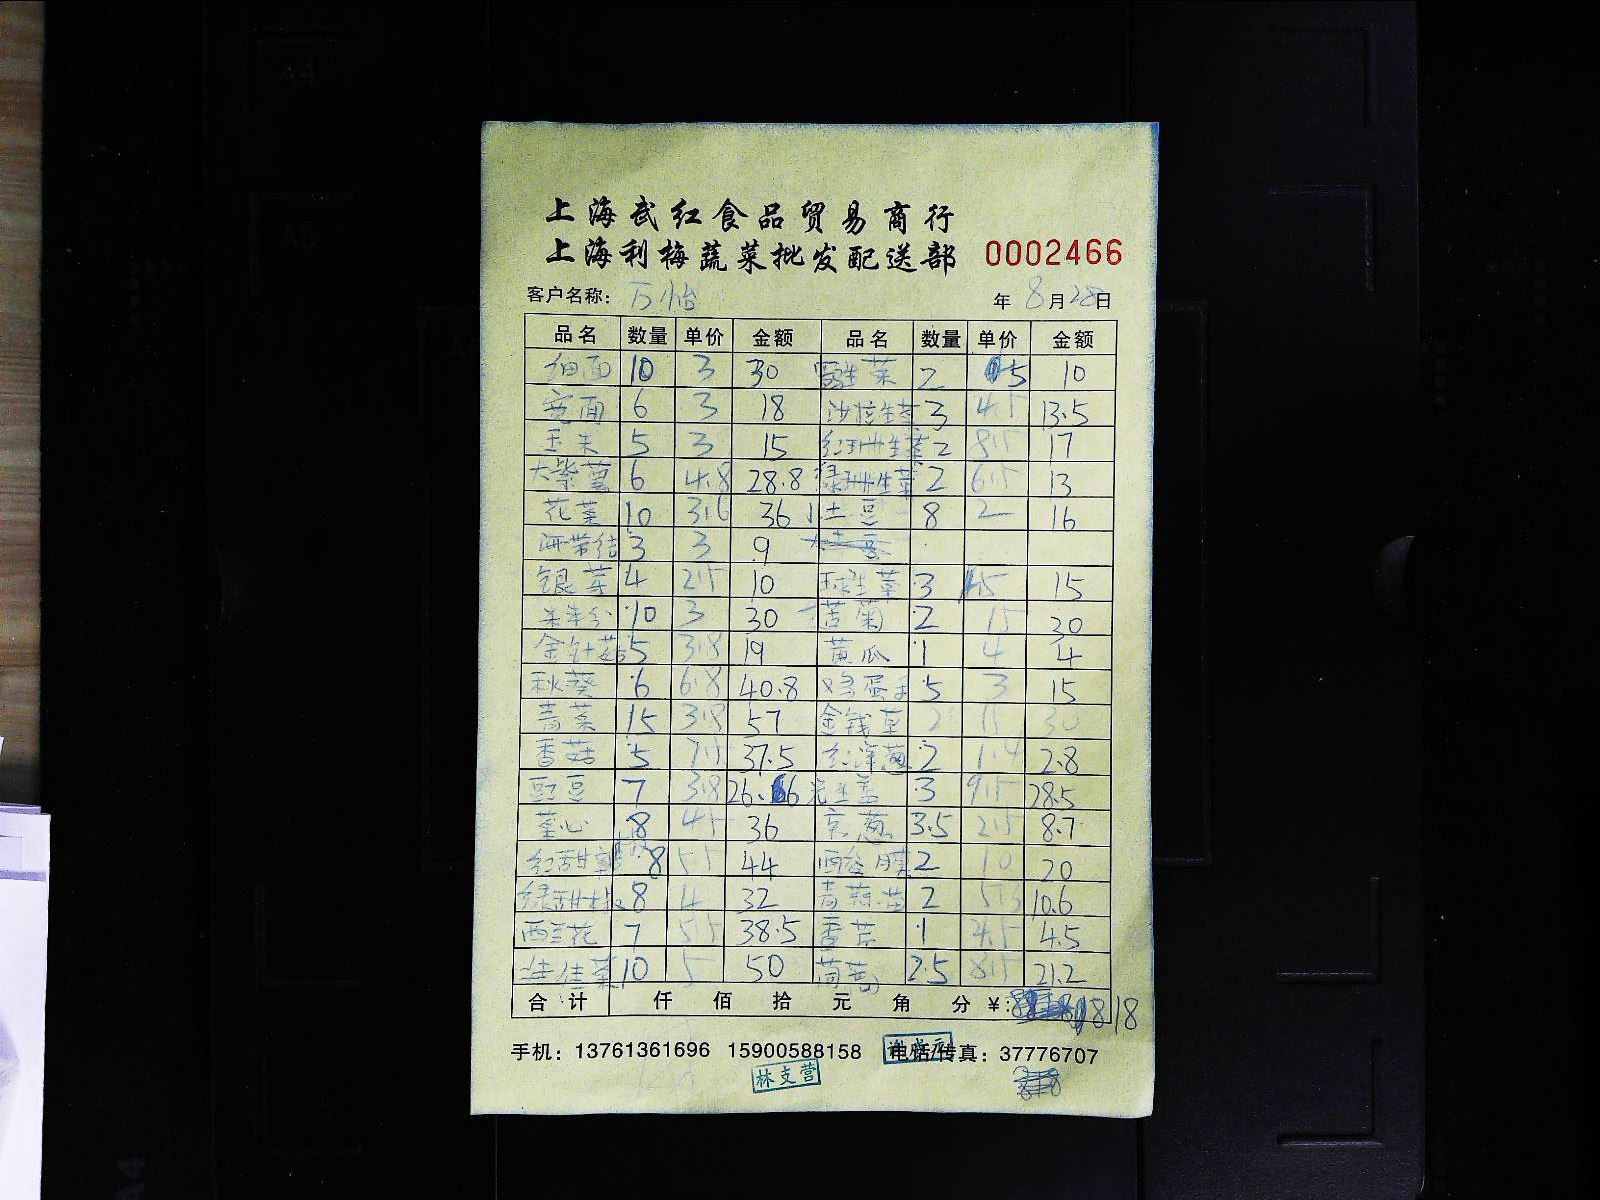 上海武红食品贸易商行
上海利梅蔬菜批发配送部 0002466
客户名称: 万怡 年 8月28日
品名 数量 单价 金额 品名 数量 单价 金额
细面 10 3 30 生菜 2 5 10
宽面 6 3 18 沙拉生菜 3 4.5 13.5
玉米 5 3 15 红珊生菜 2 8.5 17
大紫薯 6 4.8 28.8 绿珊生菜 2 6.5 13
花菜 10 3.6 36 小土豆 8 2 16
海带结 3 3 9
银芽 4 2.5 10 球生菜 3 5 15
10 3 30 苦菊 2 15 30
金针菇 5 3.8 19 黄瓜 1 4 4
秋葵 6 6.8 40.8 鸡蛋 5 3 15
青菜 15 3.8 57 金钱草 2 15 30
香菇 5 7.5 37.5 红洋葱 2 1.4 2.8
豇豆 7 3.8 26.6 3 9.5 28.5
8 4.5 36 京葱 3.5 2.5 8.7
红甜椒 8 5.5 44 2 10 20
绿甜椒 8 4 32 青蒜苗 2 5.3 10.6
西兰花 7 5.5 38.5 香芹 1 4.5 4.5
娃娃菜 10 5 50 茼蒿 2.5 8.5 21.2
合计 仟 佰 拾 元 角 分 ¥: 818
手机: 13761361696 15900588158 电话/传真: 37776707
林支营